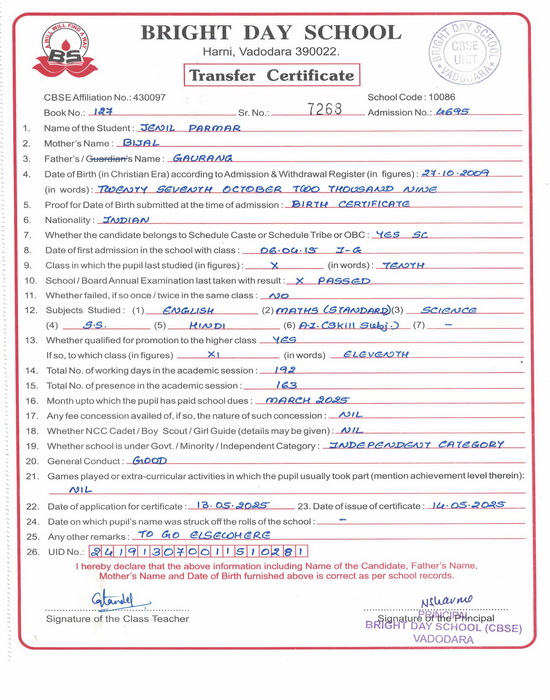 A WILL WILL FIND A WAY
BS
BRIGHT DAY SCHOOL
Harni, Vadodara 390022.
Transfer Certificate
BRIGHT DAY SCHOOL
CBSE
UNIT
VADODARA
CBSE Affiliation No.: 430097 School Code : 10086
Book No.: 127 Sr. No.: 7268 Admission No.: 4695
1. Name of the Student : JENIL PARMAR
2. Mother's Name : BIJAL
3. Father's / Guardian's Name : GAURANG
4. Date of Birth (in Christian Era) according to Admission & Withdrawal Register (in figures) : 27.10.2009
(in words) : TWENTY SEVENTH OCTOBER TWO THOUSAND NINE
5. Proof for Date of Birth submitted at the time of admission : BIRTH CERTIFICATE
6. Nationality : INDIAN
7. Whether the candidate belongs to Schedule Caste or Schedule Tribe or OBC : YES SC
8. Date of first admission in the school with class : 06.04.15 I-G
9. Class in which the pupil last studied (in figures) : X (in words) : TENTH
10. School / Board Annual Examination last taken with result : X PASSED
11. Whether failed, if so once / twice in the same class : NO
12. Subjects Studied : (1) ENGLISH (2) MATHS (STANDARD) (3) SCIENCE
(4) S.S. (5) HINDI (6) A.I. (Skill Subj.) (7) -
13. Whether qualified for promotion to the higher class YES
If so, to which class (in figures) XI (in words) ELEVENTH
14. Total No. of working days in the academic session : 192
15. Total No. of presence in the academic session : 163
16. Month upto which the pupil has paid school dues : MARCH 2025
17. Any fee concession availed of, if so, the nature of such concession : NIL
18. Whether NCC Cadet / Boy Scout / Girl Guide (details may be given) : NIL
19. Whether school is under Govt. / Minority / Independent Category : INDEPENDENT CATEGORY
20. General Conduct : GOOD
21. Games played or extra-curricular activities in which the pupil usually took part (mention achievement level therein):
NIL
22. Date of application for certificate : 13.05.2025 23. Date of issue of certificate : 14.05.2025
24. Date on which pupil's name was struck off the rolls of the school : -
25. Any other remarks : TO GO ELSEWHERE
26. UID No.: 241913070011510281
I hereby declare that the above information including Name of the Candidate, Father's Name,
Mother's Name and Date of Birth furnished above is correct as per school records.
Signature of the Class Teacher Signature of the Principal
PRINCIPAL
BRIGHT DAY SCHOOL (CBSE)
VADODARA